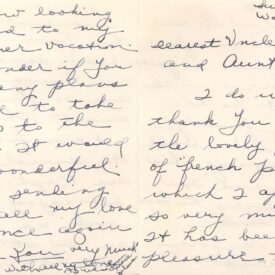 ow looking
d to my
er vocation.
nder if You
any plans
l to take
to the
It would
onderful.
sending
all my love
nce again
You very much
Dearest Uncle
and Aunt
I do w
thank You
the lovely
of french p
which I a
so very m
It has bee
pleasure